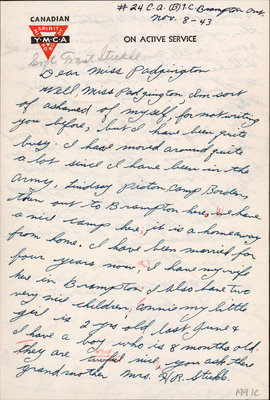 CANADIAN
SPIRIT
Y.M.C.A
MIND BODY
ON ACTIVE SERVICE
#24 C.A.(B)T.C Brampton Ont.
Nov. 8-43
Grant Stickle
Dear Miss Padgington
Well Miss Padgington I'm sort
of ashamed of myself for not writing
you before, but I have been quite
busy. I have moved around quite
a lot since I have been in the
army, Lindsay Picton, Camp Borden,
then out to Brampton here, We have
a nice camp here, it is a home away
from home. I have been married for
four years now, I have my wife
here in Brampton, I also have two
very nice children, Connie my little
girl is 2 yrs old last June &
I have a boy who is 8 months old.
They are awful nice, you ask their
grandmother Mrs. H.R. Stickle.